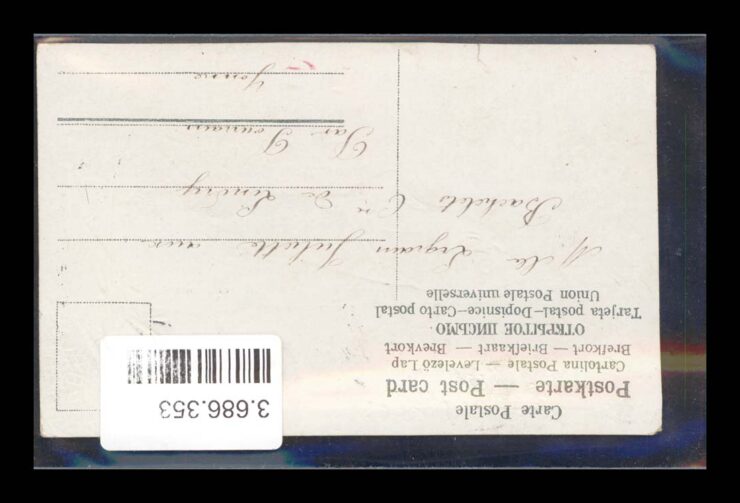 Carte Postale
Postkarte — Post card
Cartolina Postale — Levelező Lap
Brefkort — Briefkaart — Brevkort
ОТКРЫТОЕ ПИСЬМО
Tarjeta postal–Dopisnice–Carto postal
Union Postale universelle
Juliette aux
Bachelets Cn de Lindry
Par
Yonne
3.686.353